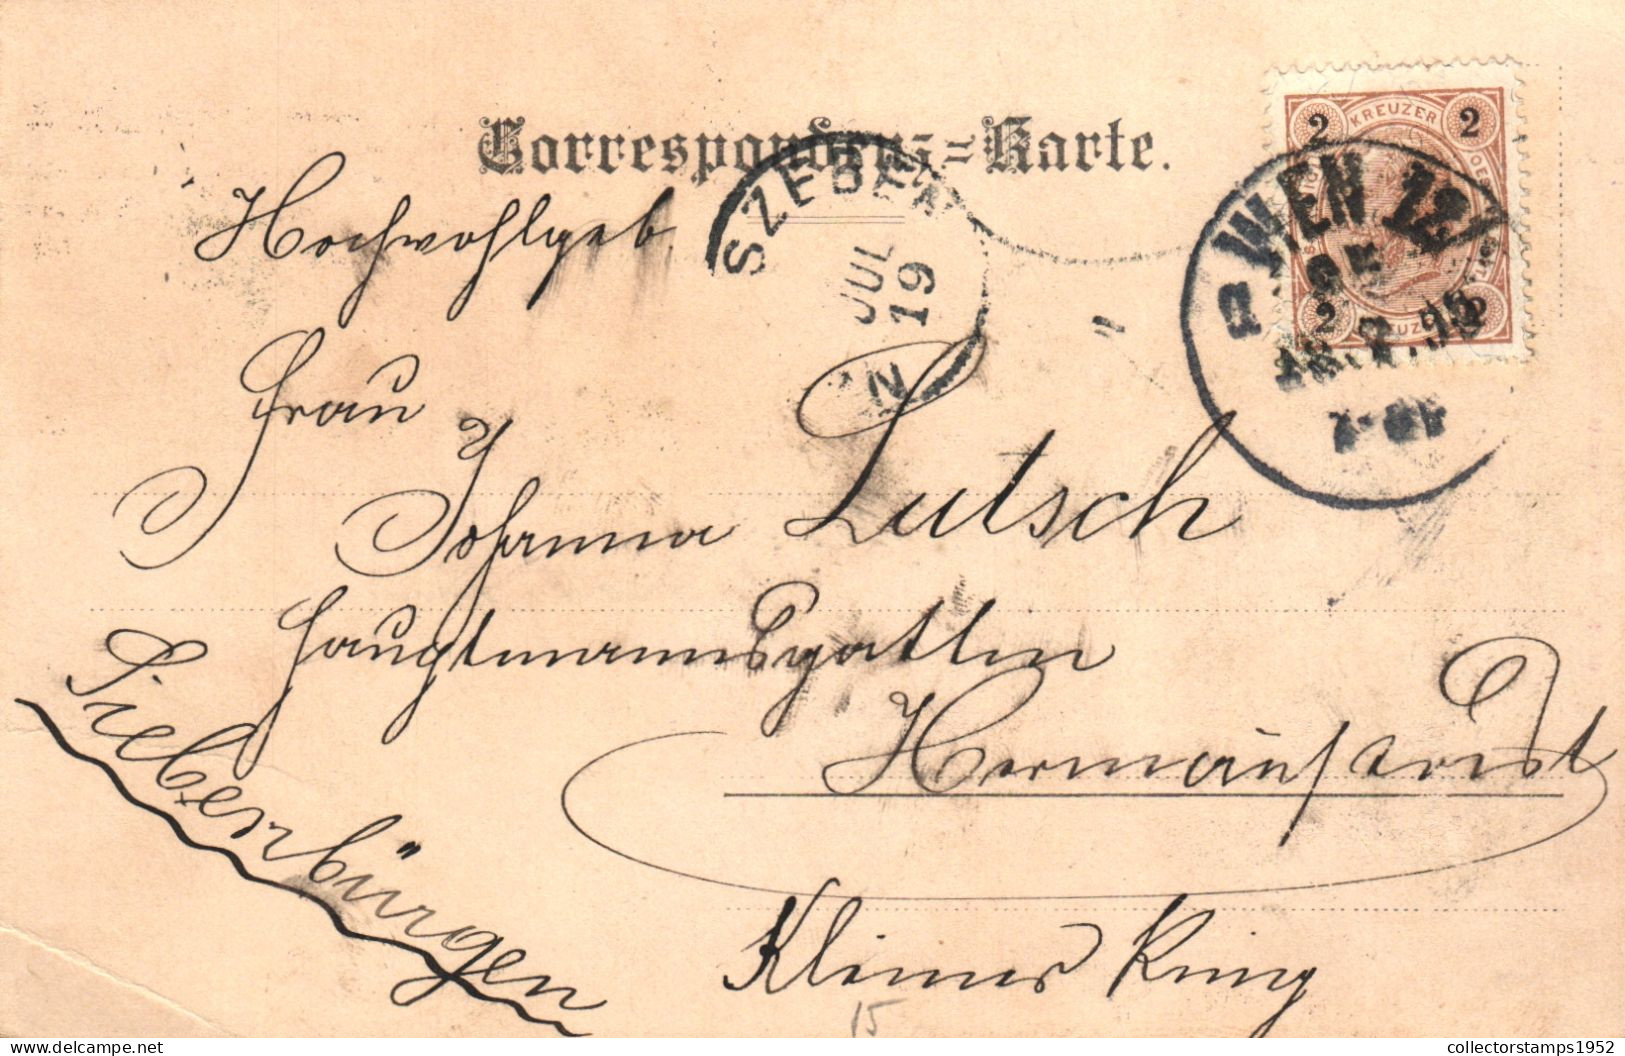 Correspondenz-Karte.
2 KREUZER 2
2 KREUZER 2
WIEN
SZEBEN
JUL
19
Hochwohlgeb
Frau
Johanna Lutsch
Hauptmannsgattin
Hermannstadt
Siebenbürgen
Kleiner Ring
15
delcampe.net
collectorstamps1952